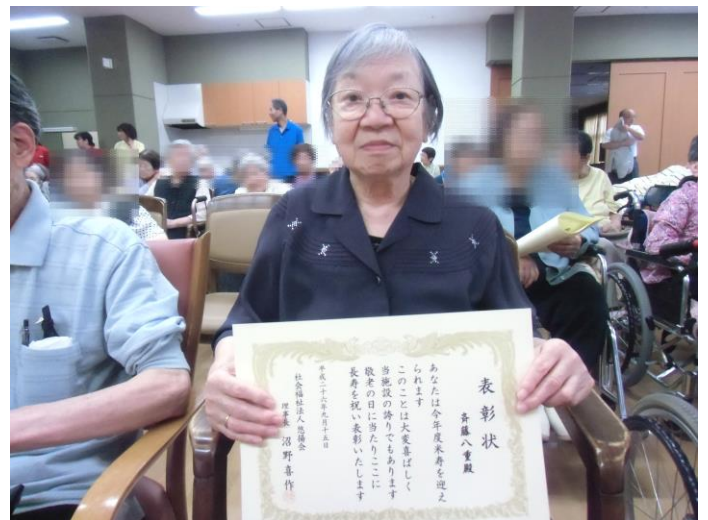 表彰状
斉藤八重殿
あなたは今年度米寿を迎え
られます
このことは大変喜ばしく
当施設の誇りでもあります
敬老の日に当たりここに
長寿を祝い表彰いたします
平成二十六年九月十五日
社会福祉法人 悠陽会
理事長 沼野喜作